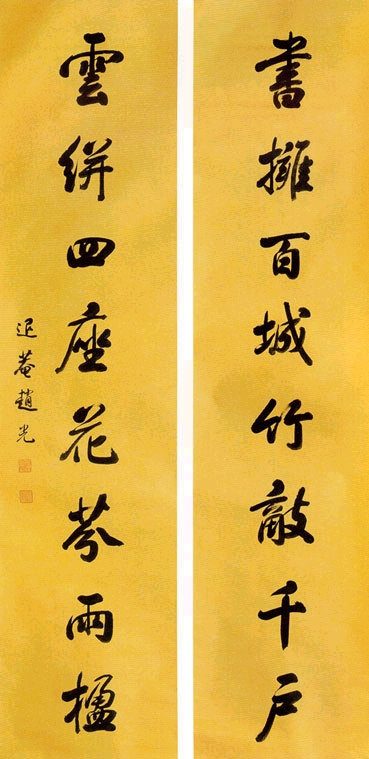 書擁百城竹敲千戶
雲絣四座花芬兩楹
退菴趙光